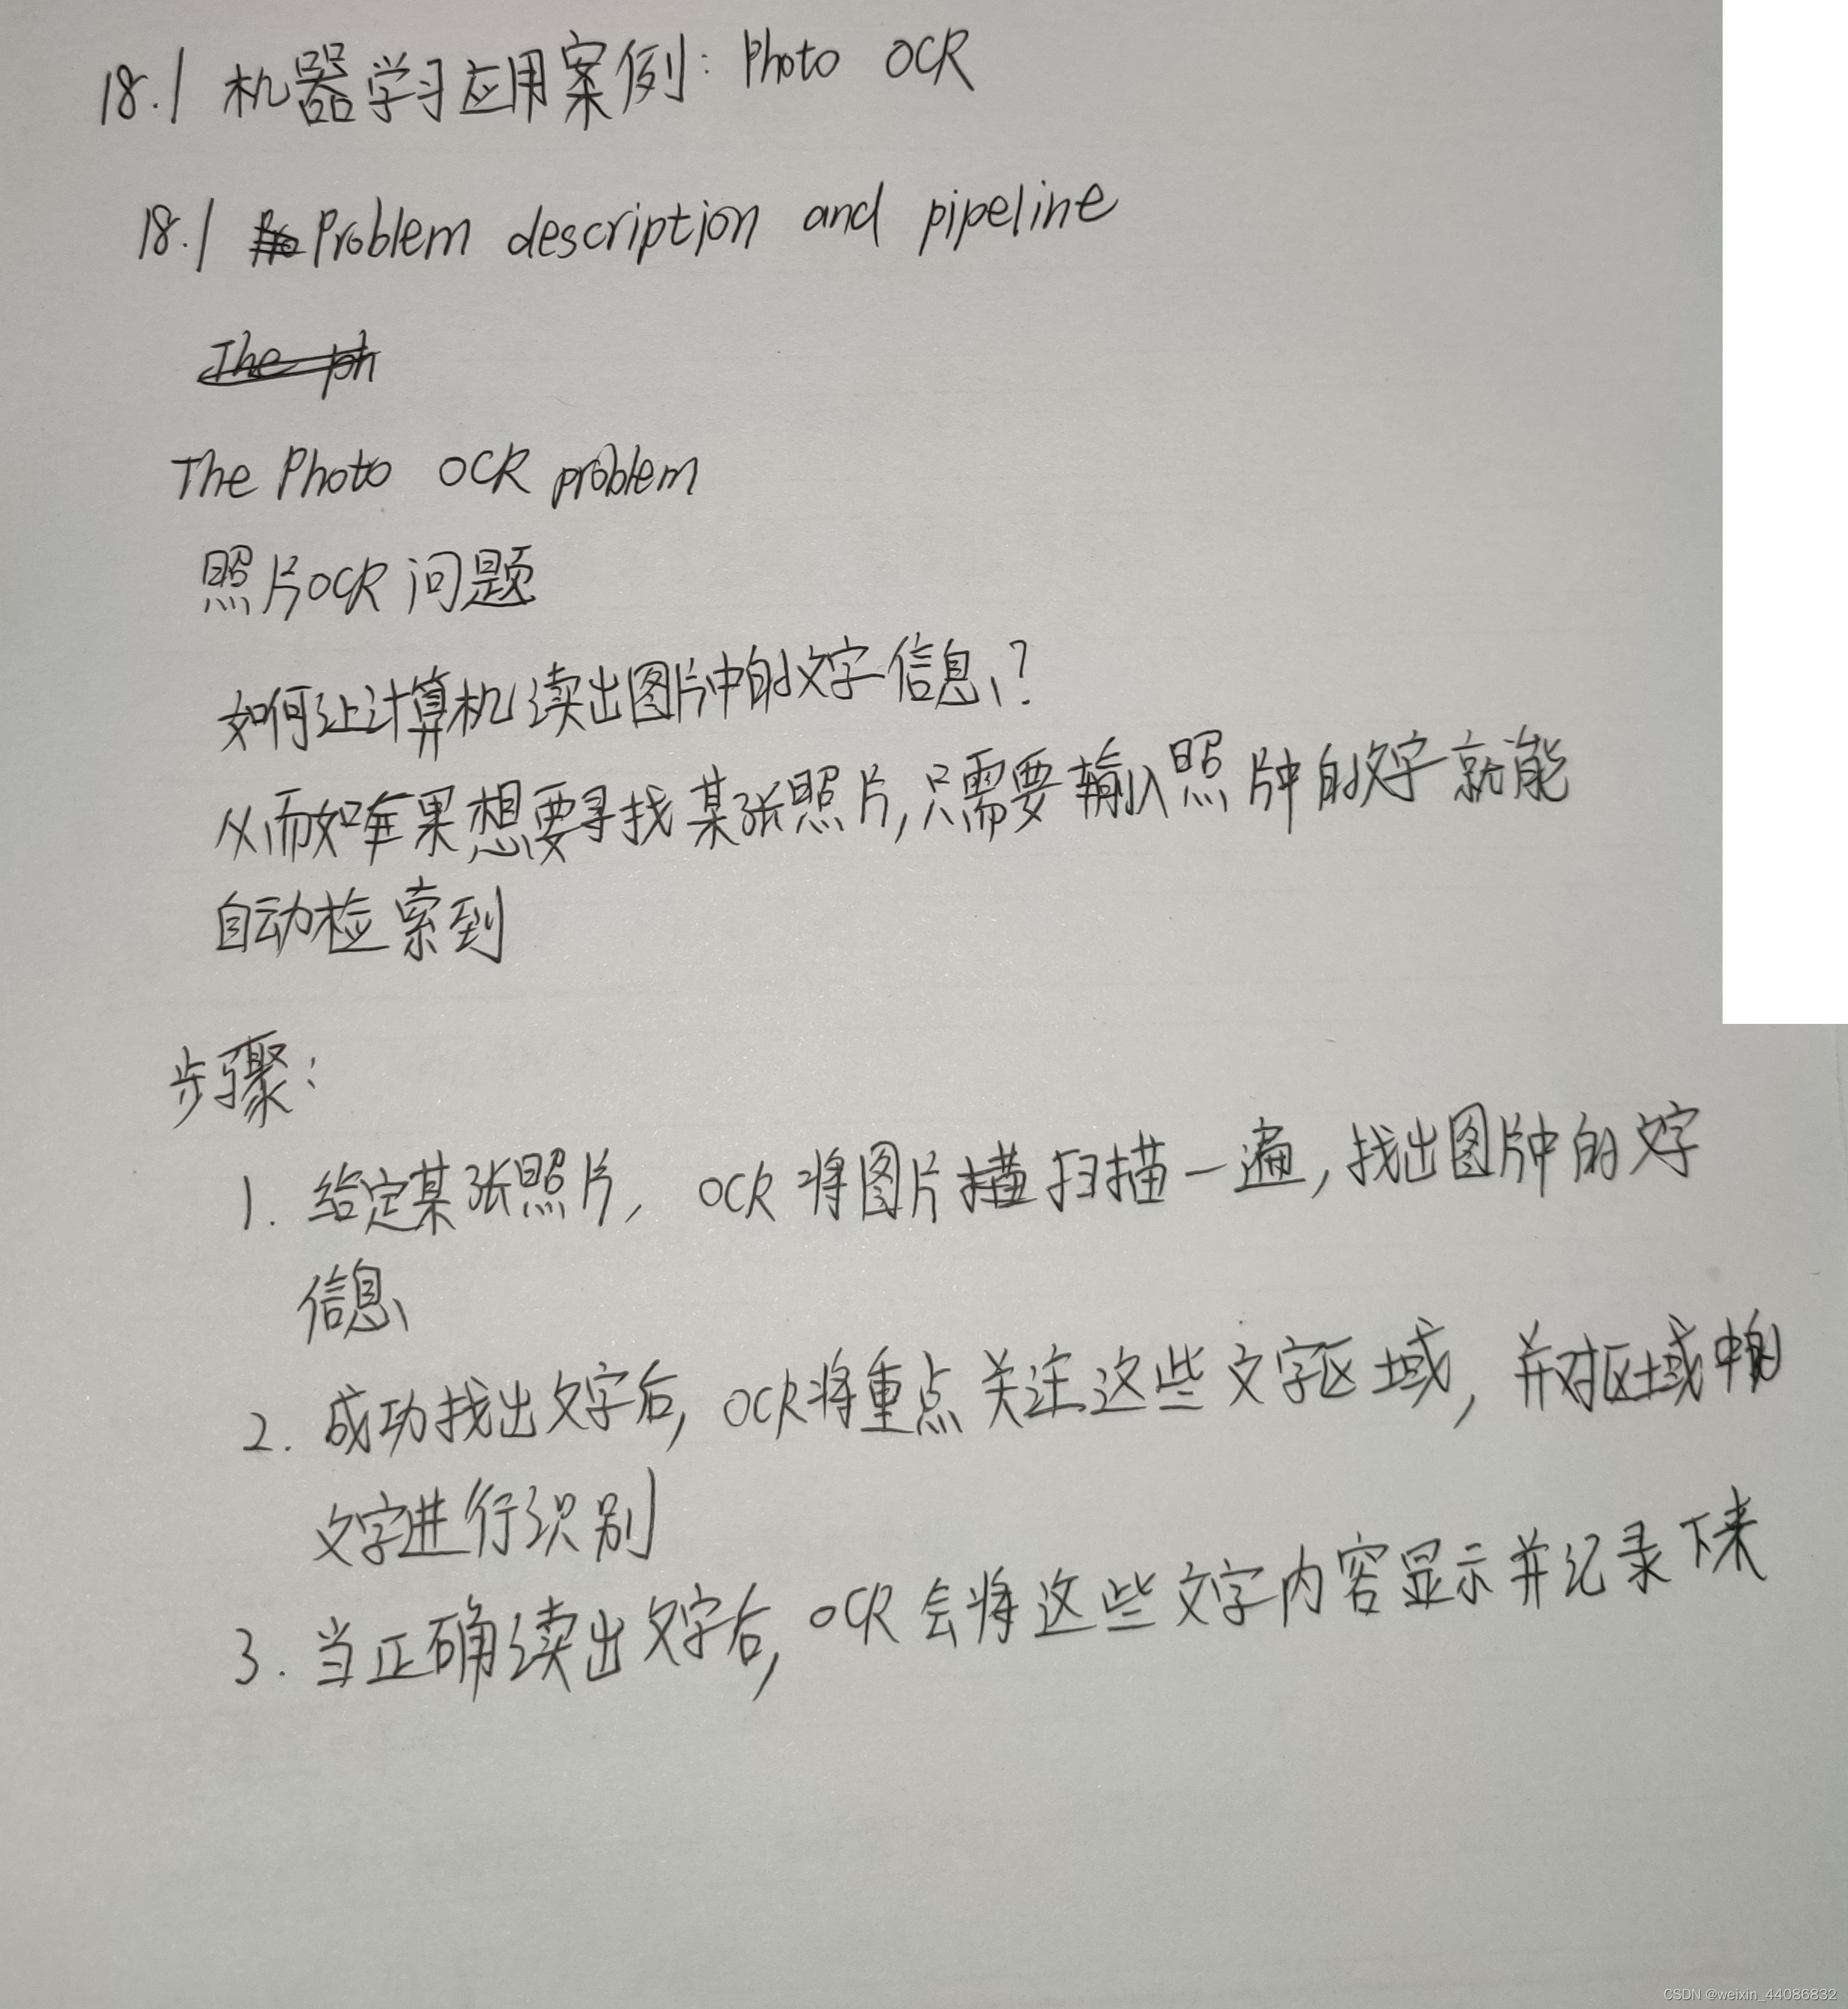 18.1 机器学习应用案例: Photo OCR
18.1 Problem description and pipeline
The ph
The Photo OCR problem
照片OCR问题
如何让计算机读出图片中的文字信息?
从而如果想要寻找某张照片,只需要输入照片中的文字就能
自动检索到
步骤:
1. 给定某张照片, OCR将图片扫描一遍,找出图片中的文字
信息
2. 成功找出文字后, OCR将重点关注这些文字区域, 并对区域中的
文字进行识别
3. 当正确读出文字后, OCR会将这些文字内容显示并记录下来
CSDN @weixin_44086832